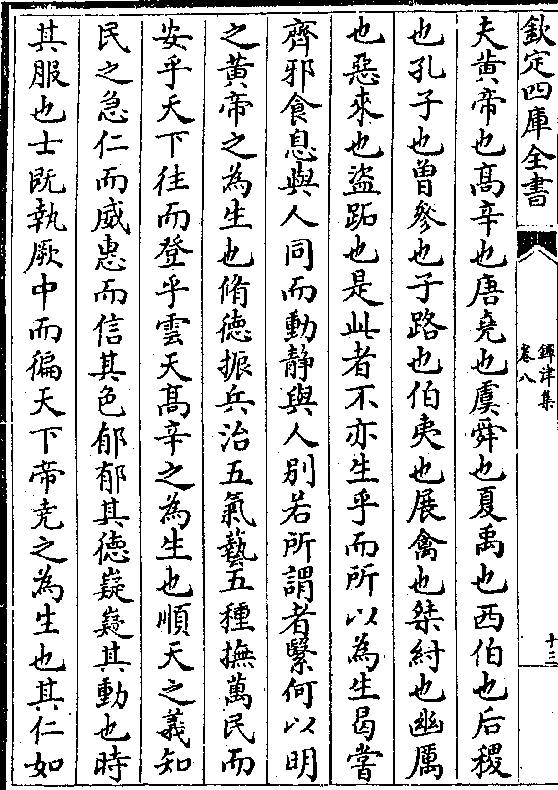 欽定四庫全書
鐔津集
卷八
十三
夫黄帝也髙辛也唐堯也虞舜也夏禹也西伯也后稷
也孔子也曽參也子路也伯夷也展禽也桀紂也幽厲
也惡來也盜跖也是此者不亦生乎而所以為生曷嘗
齊邪食息與人同而動静與人别若所謂者繄何以明
之黄帝之為生也脩徳振兵治五氣藝五種撫萬民而
安乎天下往而登乎雲天髙辛之為生也順天之義知
民之急仁而威惠而信其色郁郁其徳嶷嶷其動也時
其服也士既執厥中而徧天下帝堯之為生也其仁如